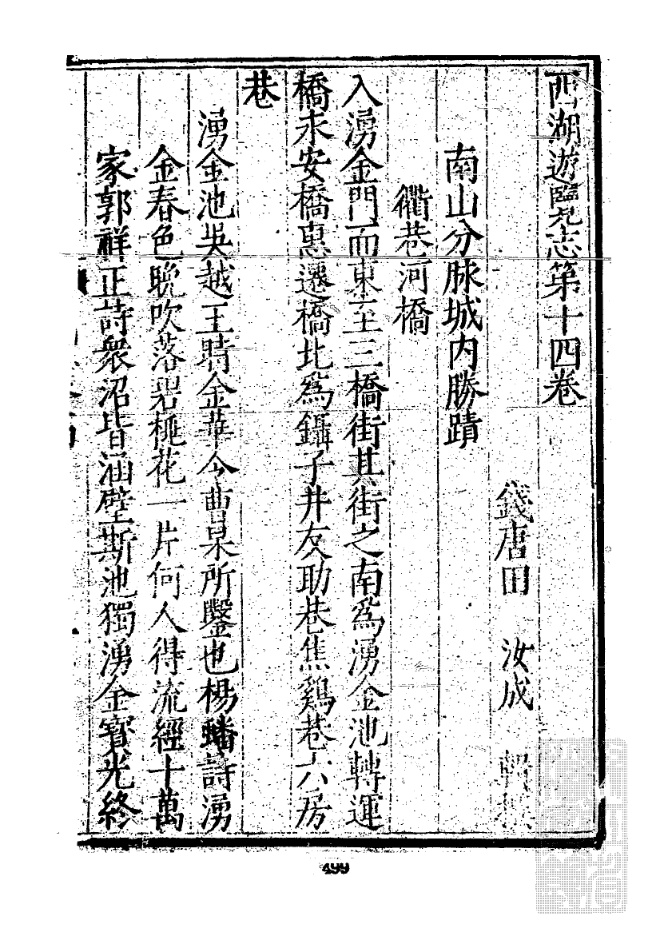 西湖遊覽志第十四卷
錢唐田 汝成 輯撰
南山分脉城内勝蹟
衢巷河橋
入湧金門而東至三橋街其街之南爲湧金池轉運
橋永安橋惠遷橋北爲鑷子井友助巷焦鷄巷六房
巷
湧金池吳越王時金華令曹杲所鑿也楊蟠詩湧
金春色晩吹落碧桃花一片何人得流經十萬
家郭祥正詩衆沼皆涵壁斯池獨湧金寳光終
499